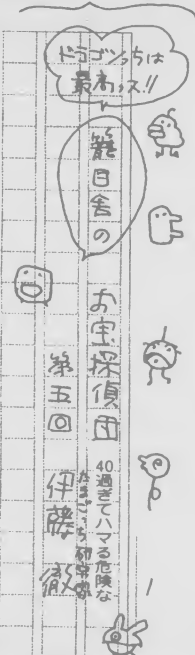 ドラゴンっちは
最高ッス!!
籠目舎の
お宝探偵団
第五回
40過ぎてハマる危険な
たまごっち研究家
伊藤徹